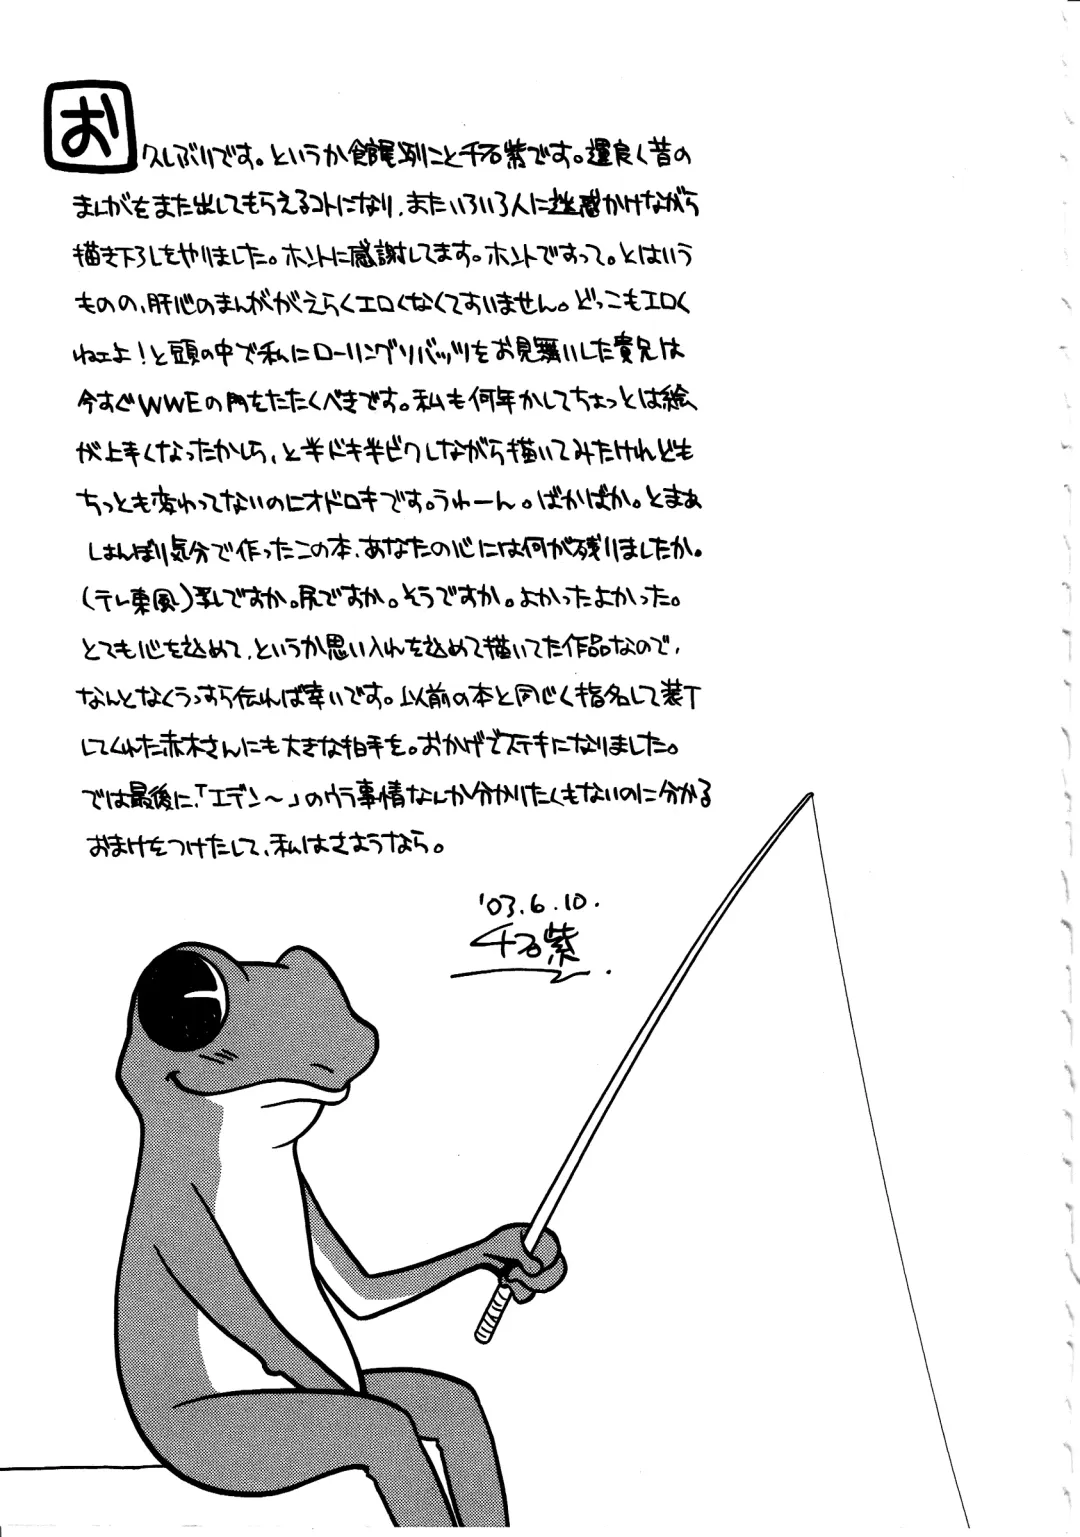 お久しぶりです。というか館尾冽こと千石紫です。運良く昔の
まんがをまた出してもらえるコトになり、またいろいろ人に迷惑かけながら
描き下ろしをやりました。ホントに感謝してます。ホントですって。とはいう
ものの、肝心のまんががえらくエロくなくてすいません。どっこもエロく
ねェよ！と頭の中で私にローリングソバットをお見舞いした貴兄は
今すぐWWEの門をたたくべきです。私も何年かしてちょっとは絵
が上手くなったかしら、と半ドキ半ビクしながら描いてみたけれども
ちっとも変わってないのにオドロキです。うわーん。ばかばか。とまぁ
しょんぼり気分で作ったこの本、あなたの心には何が残りましたか。
(テレ東風)乳ですか。尻ですか。そうですか。よかったよかった。
とても心を込めて、というか思い入れを込めて描いてた作品なので、
なんとなくうっすら伝われば幸いです。以前の本と同じく指名して装丁
してくれた赤木さんにも大きな拍手を。おかげでステキになりました。
では最後に、「エデン〜」のウラ事情なんか分かりたくもないのに分かる
おまけをつけたして、私はさようなら。
'03.6.10.
千石紫